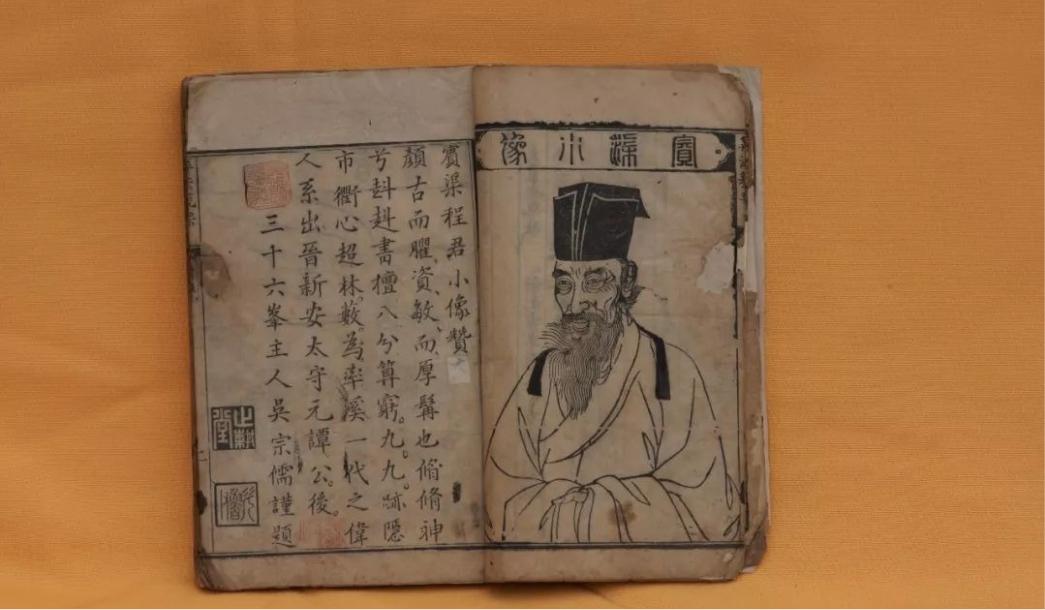 賓渠小像
賓渠程君小像贊
顏古而臞資敏而厚髯也脩脩神
兮書擅八分算窮。九。九。跡隱
市衢心超林藪。為率溪一代之偉
人系出晉新安太守元譚公。後。
三十六峯主人吳宗儒謹題